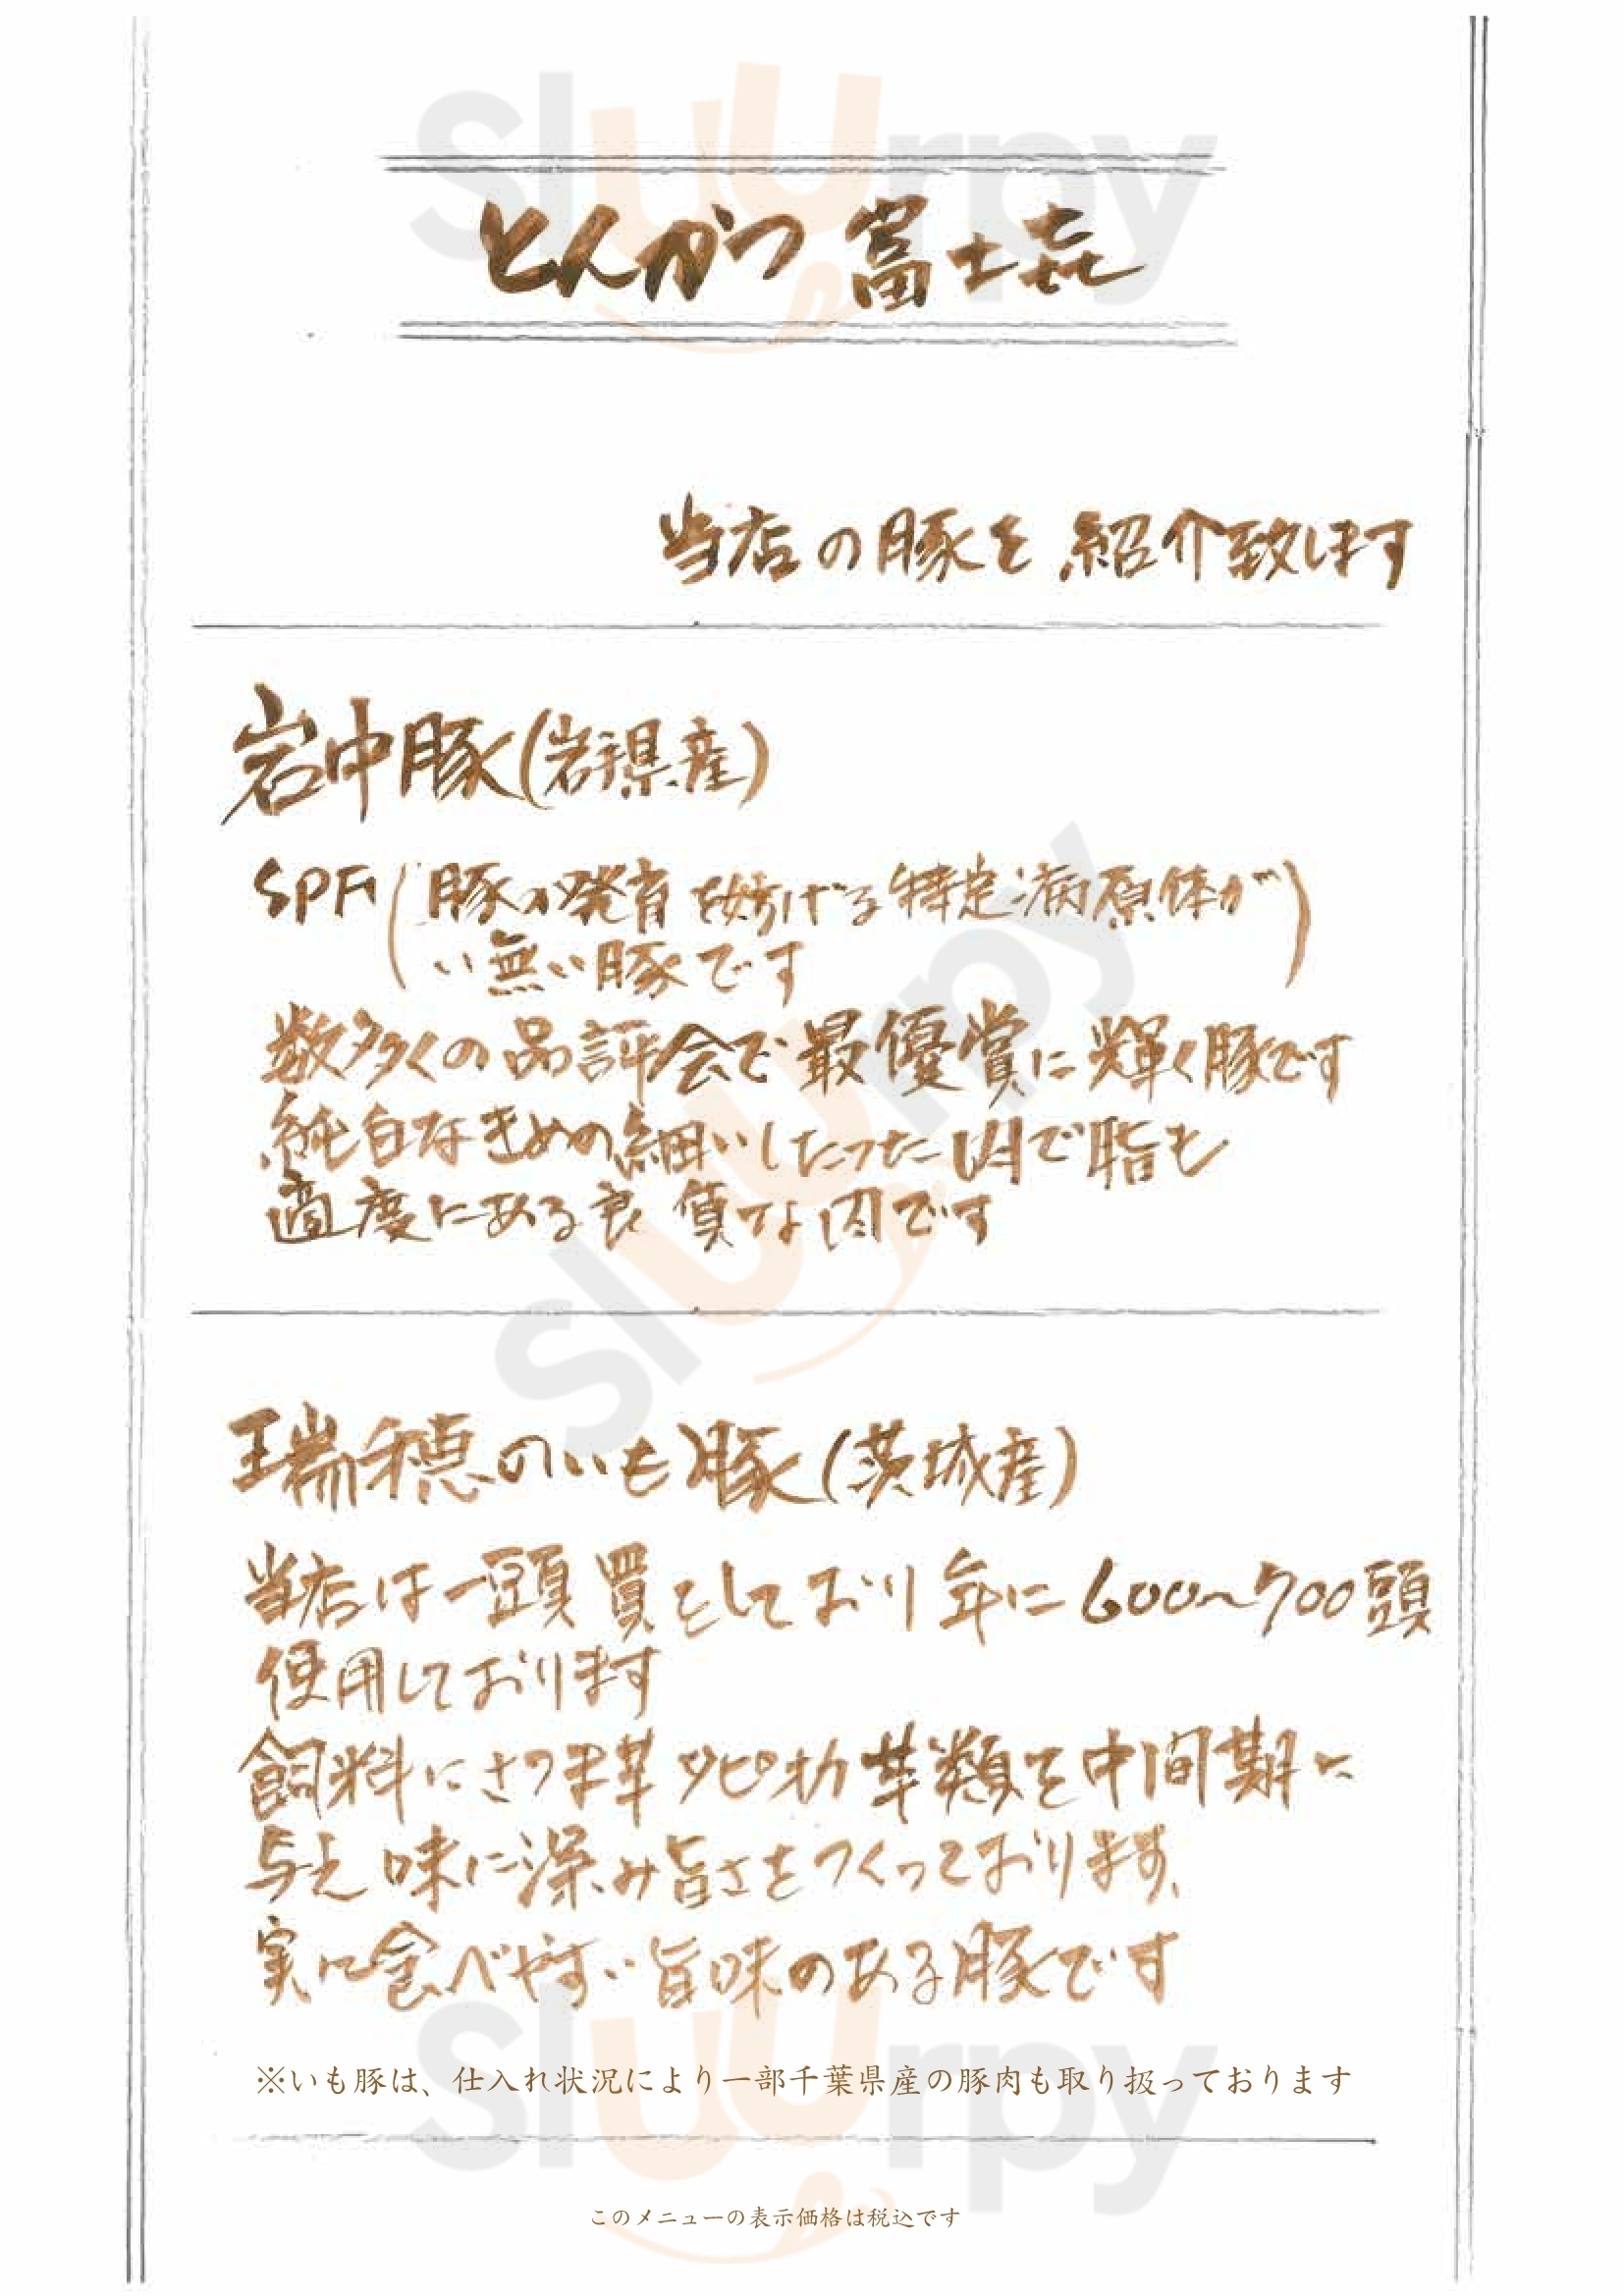 とんかつ 富士㐂
当店の豚を紹介致します
岩中豚(岩手県産)
SPF(豚の発育を妨げる特定病原体が
い無い豚です)
数多くの品評会で最優賞に輝く豚です
純白なきめの細いしたった肉で脂も
適度にある良質な肉です
瑞穂のいも豚(茨城産)
当店は一頭買をしており年に600〜700頭
使用しております
飼料にさつま芋タピオカ芋類を中間期に
与え味に深み旨さをつくっております、
実に食べやすい旨味のある豚です
※いも豚は、仕入れ状況により一部千葉県産の豚肉も取り扱っております
このメニューの表示価格は税込です
sluurpy
sluurpy
sluurpy